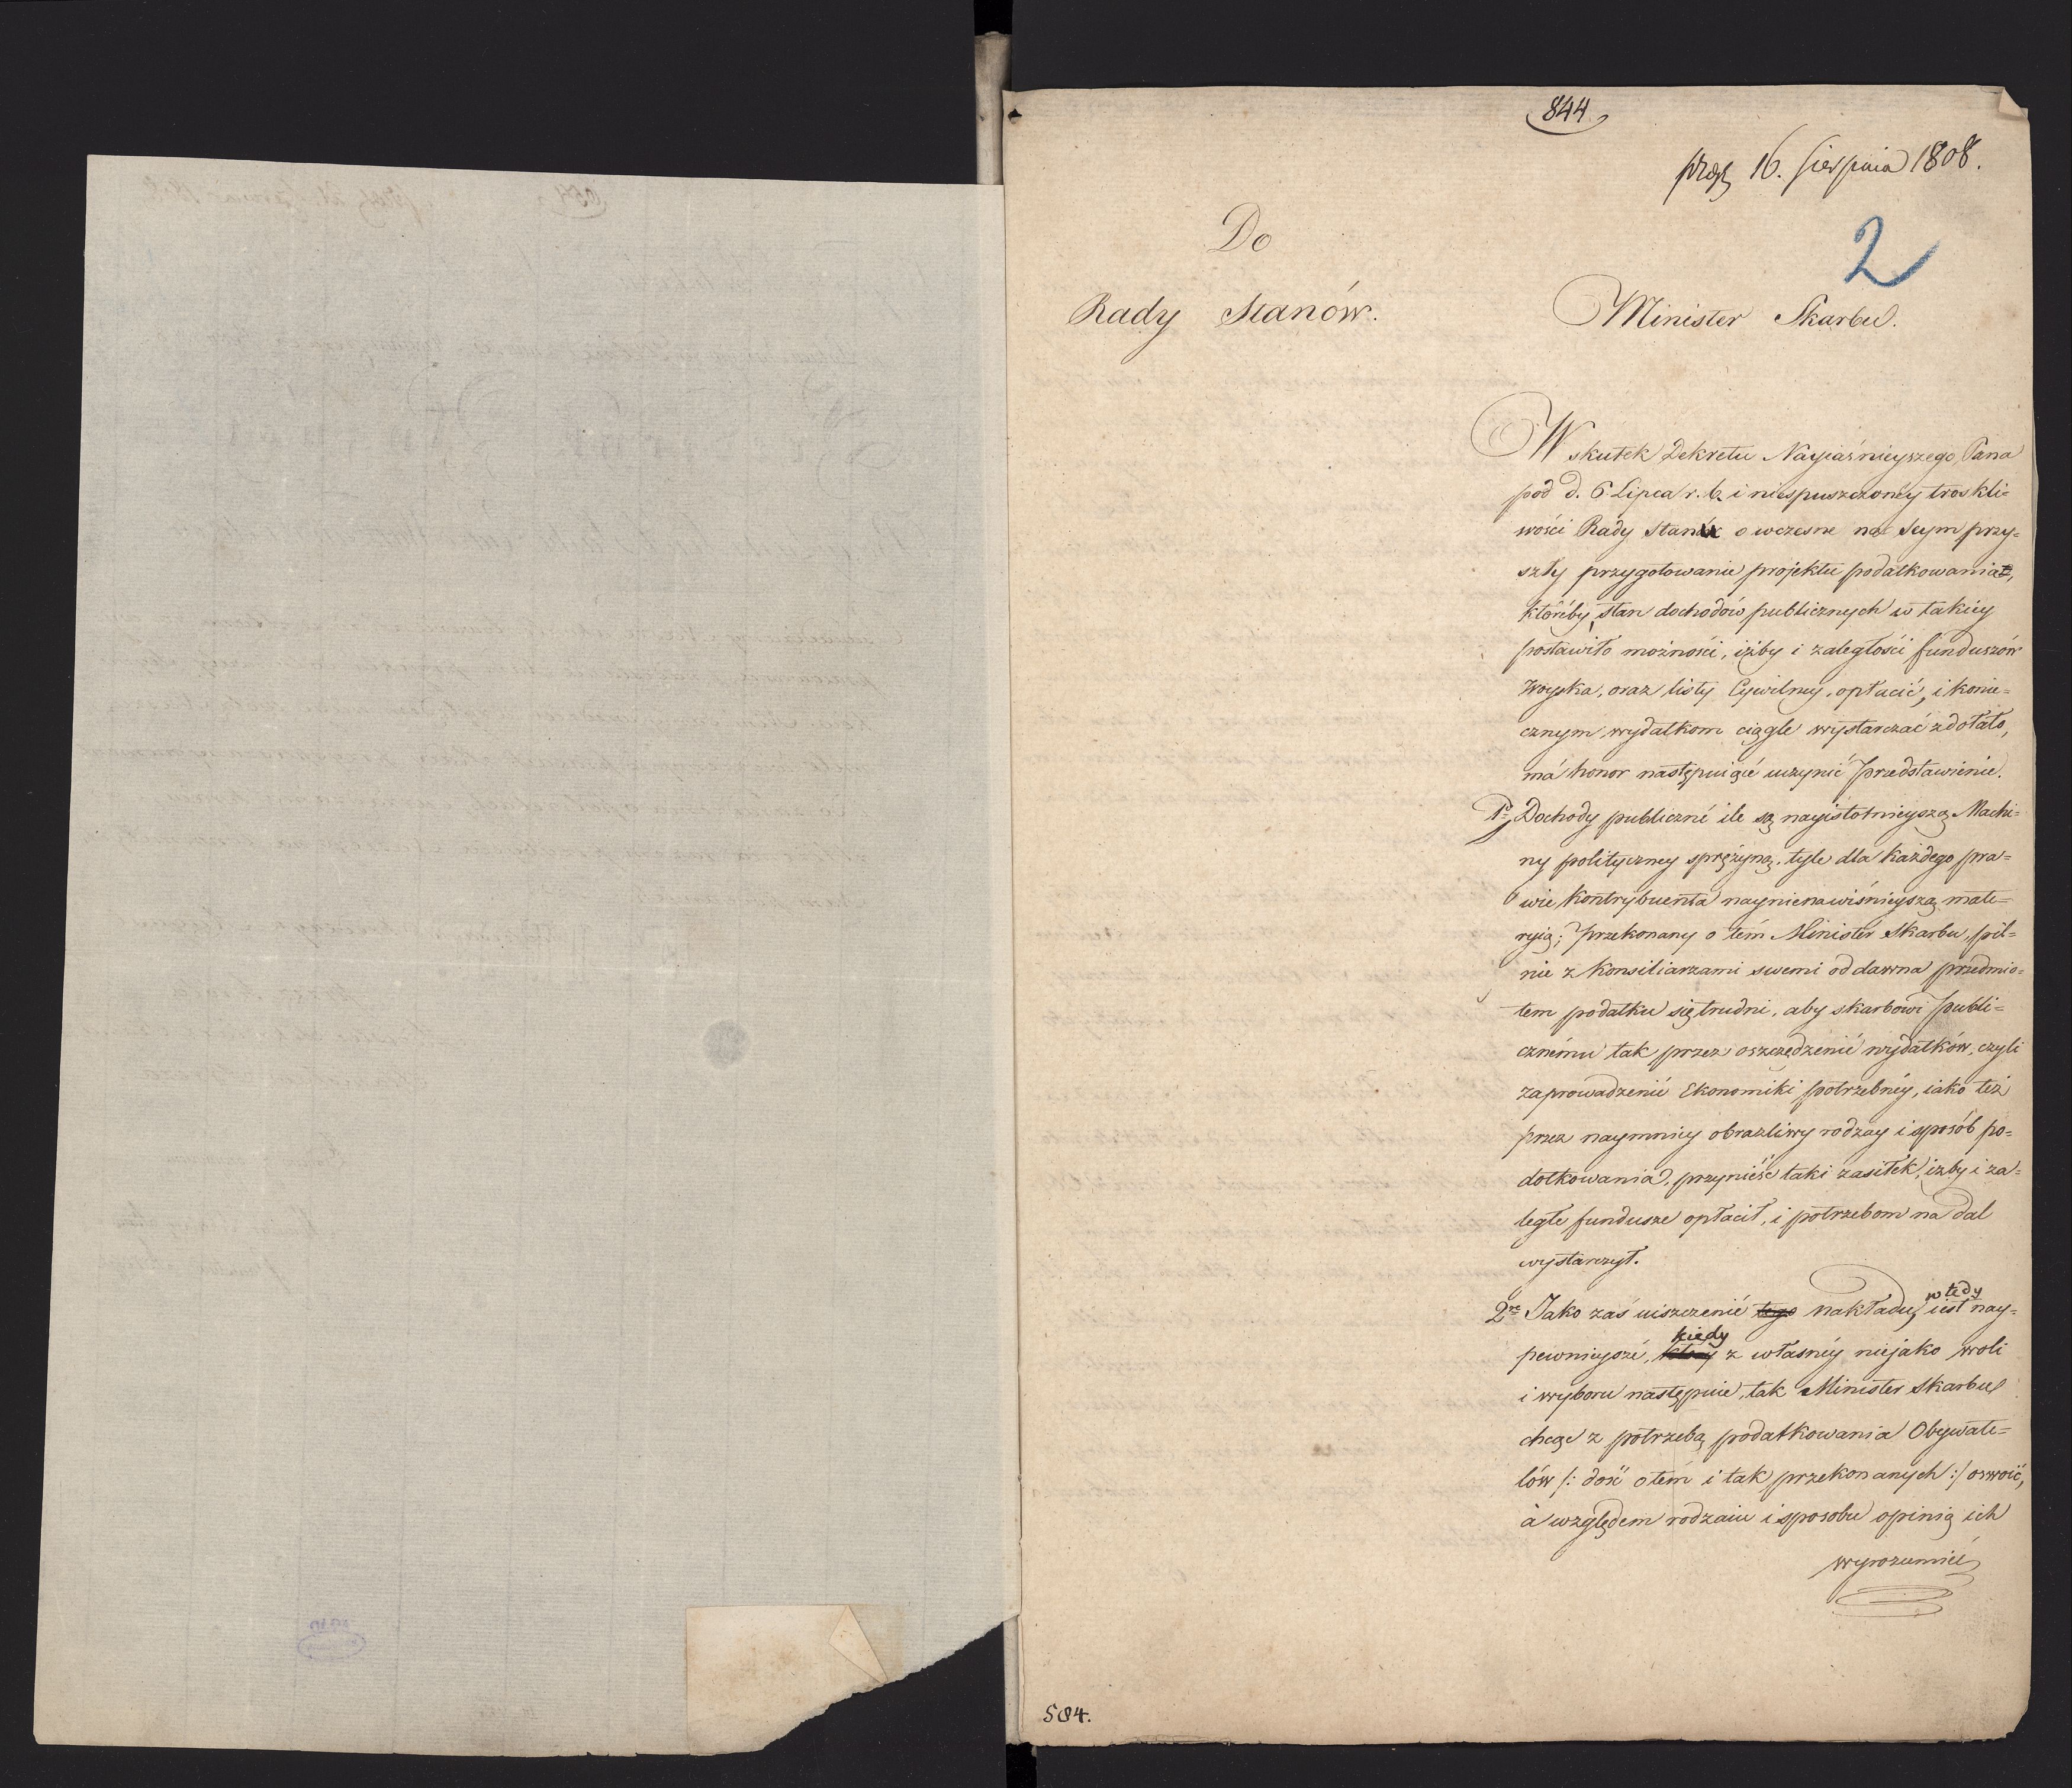 844.
prez 16. Sierpnia 1808.
2
Do
Rady Stanów.
Minister Skarbu.
W skutek Dekretu Nayiaśnieyszego Pana
pod d. 6 Lipca r. b. i niespuszczoney troskli=
wości Rady Stanu o wczesne na Seym przy=
szły przygotowanie projektu podatkowania,
któréby stan dochodów publicznych w takiey
postawiło możności, iżby i zaległości funduszów
Woyska, oraz listy Cywilney, opłacić, i konie=
cznym wydatkom ciągle wystarczać zdołało,
má honor następuiące uczynić przedstawienie.
1º Dochody publiczné ile są nayistotnieyszą Machi=
ny polityczney sprężyną, tyle dla każdego pra=
wie kontrybuenta naynienawiśnieyszą mate=
ryią; przekonany o tém Minister Skarbu, pil=
nie z Konsiliarzami swemi od dawna przedmio=
tem podatku się trudni, aby skarbowi publi=
cznému tak przez oszczędzenié wydatków, czyli
zaprowadzenié Ekonomiki potrzebnéy, iako też
przez naymniey obraźliwy rodzay i sposób po=
datkowania, przynieść taki zasiłek, iżby i za=
ległe fundusze opłacił, i potrzebom na dal
wystarczył.
2re Jako zaś uiszczenié tego nakładu, iest wtedy nay=
pewnieyszé, kiedy z własnéy niejako woli
i wyboru następuie, tak Minister Skarbu
chcąc z potrzebą podatkowania Obywate=
lów /: dość o tém i tak przekonanych :/ oswoić,
à względem rodzaiu i sposobu opinią ich
wyrozumieć
584.